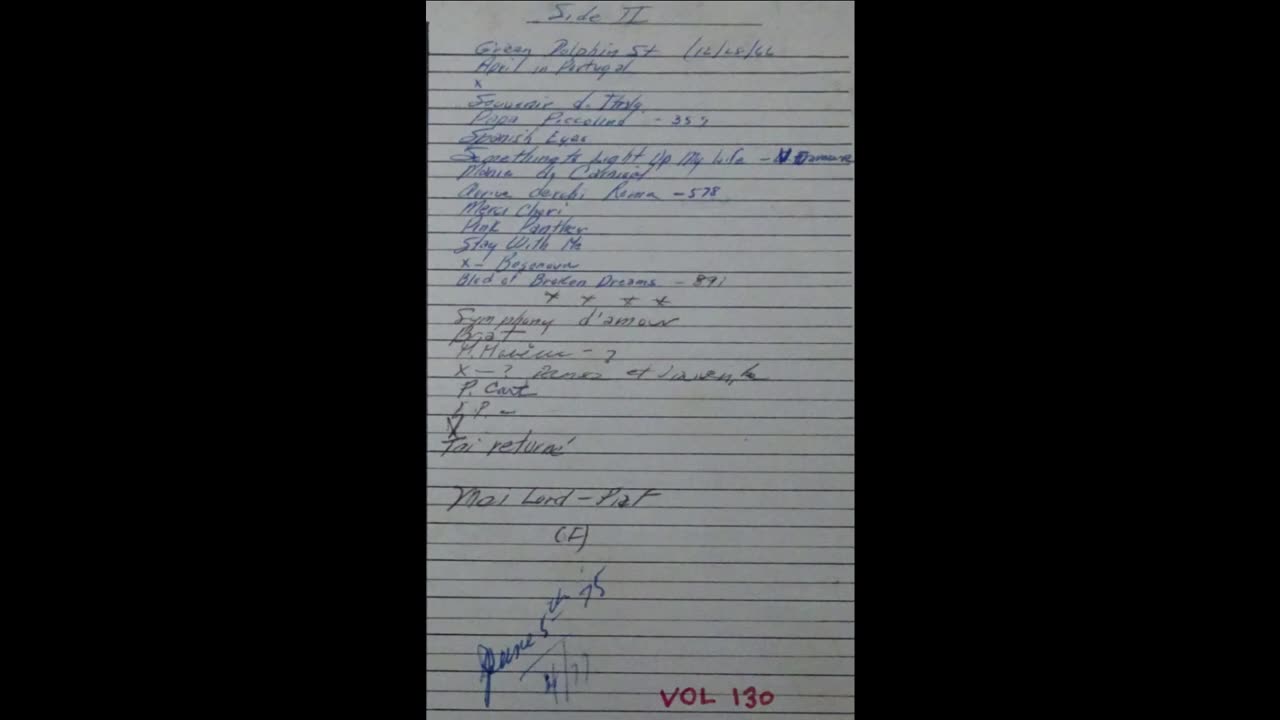 Side II
Green Dolphin St (12/28/66
April in Portugal
x
Souvenir d.
Papa Piccolino - 35
Spanish Eyes
Something to Light Up My Life -
Mania d. Carnival
derchi Roma - 578
Merci Cheri
Pink Panther
Stay With Me
x - Bosanova
Blvd of Broken Dreams - 891
x x x x
Symphony d'amour
M. - ?
x - ? et
P. Cart
P. -
x
J'ai returné
Moi Lord - Piaf
(F)
June 5th 75
/77
VOL 130